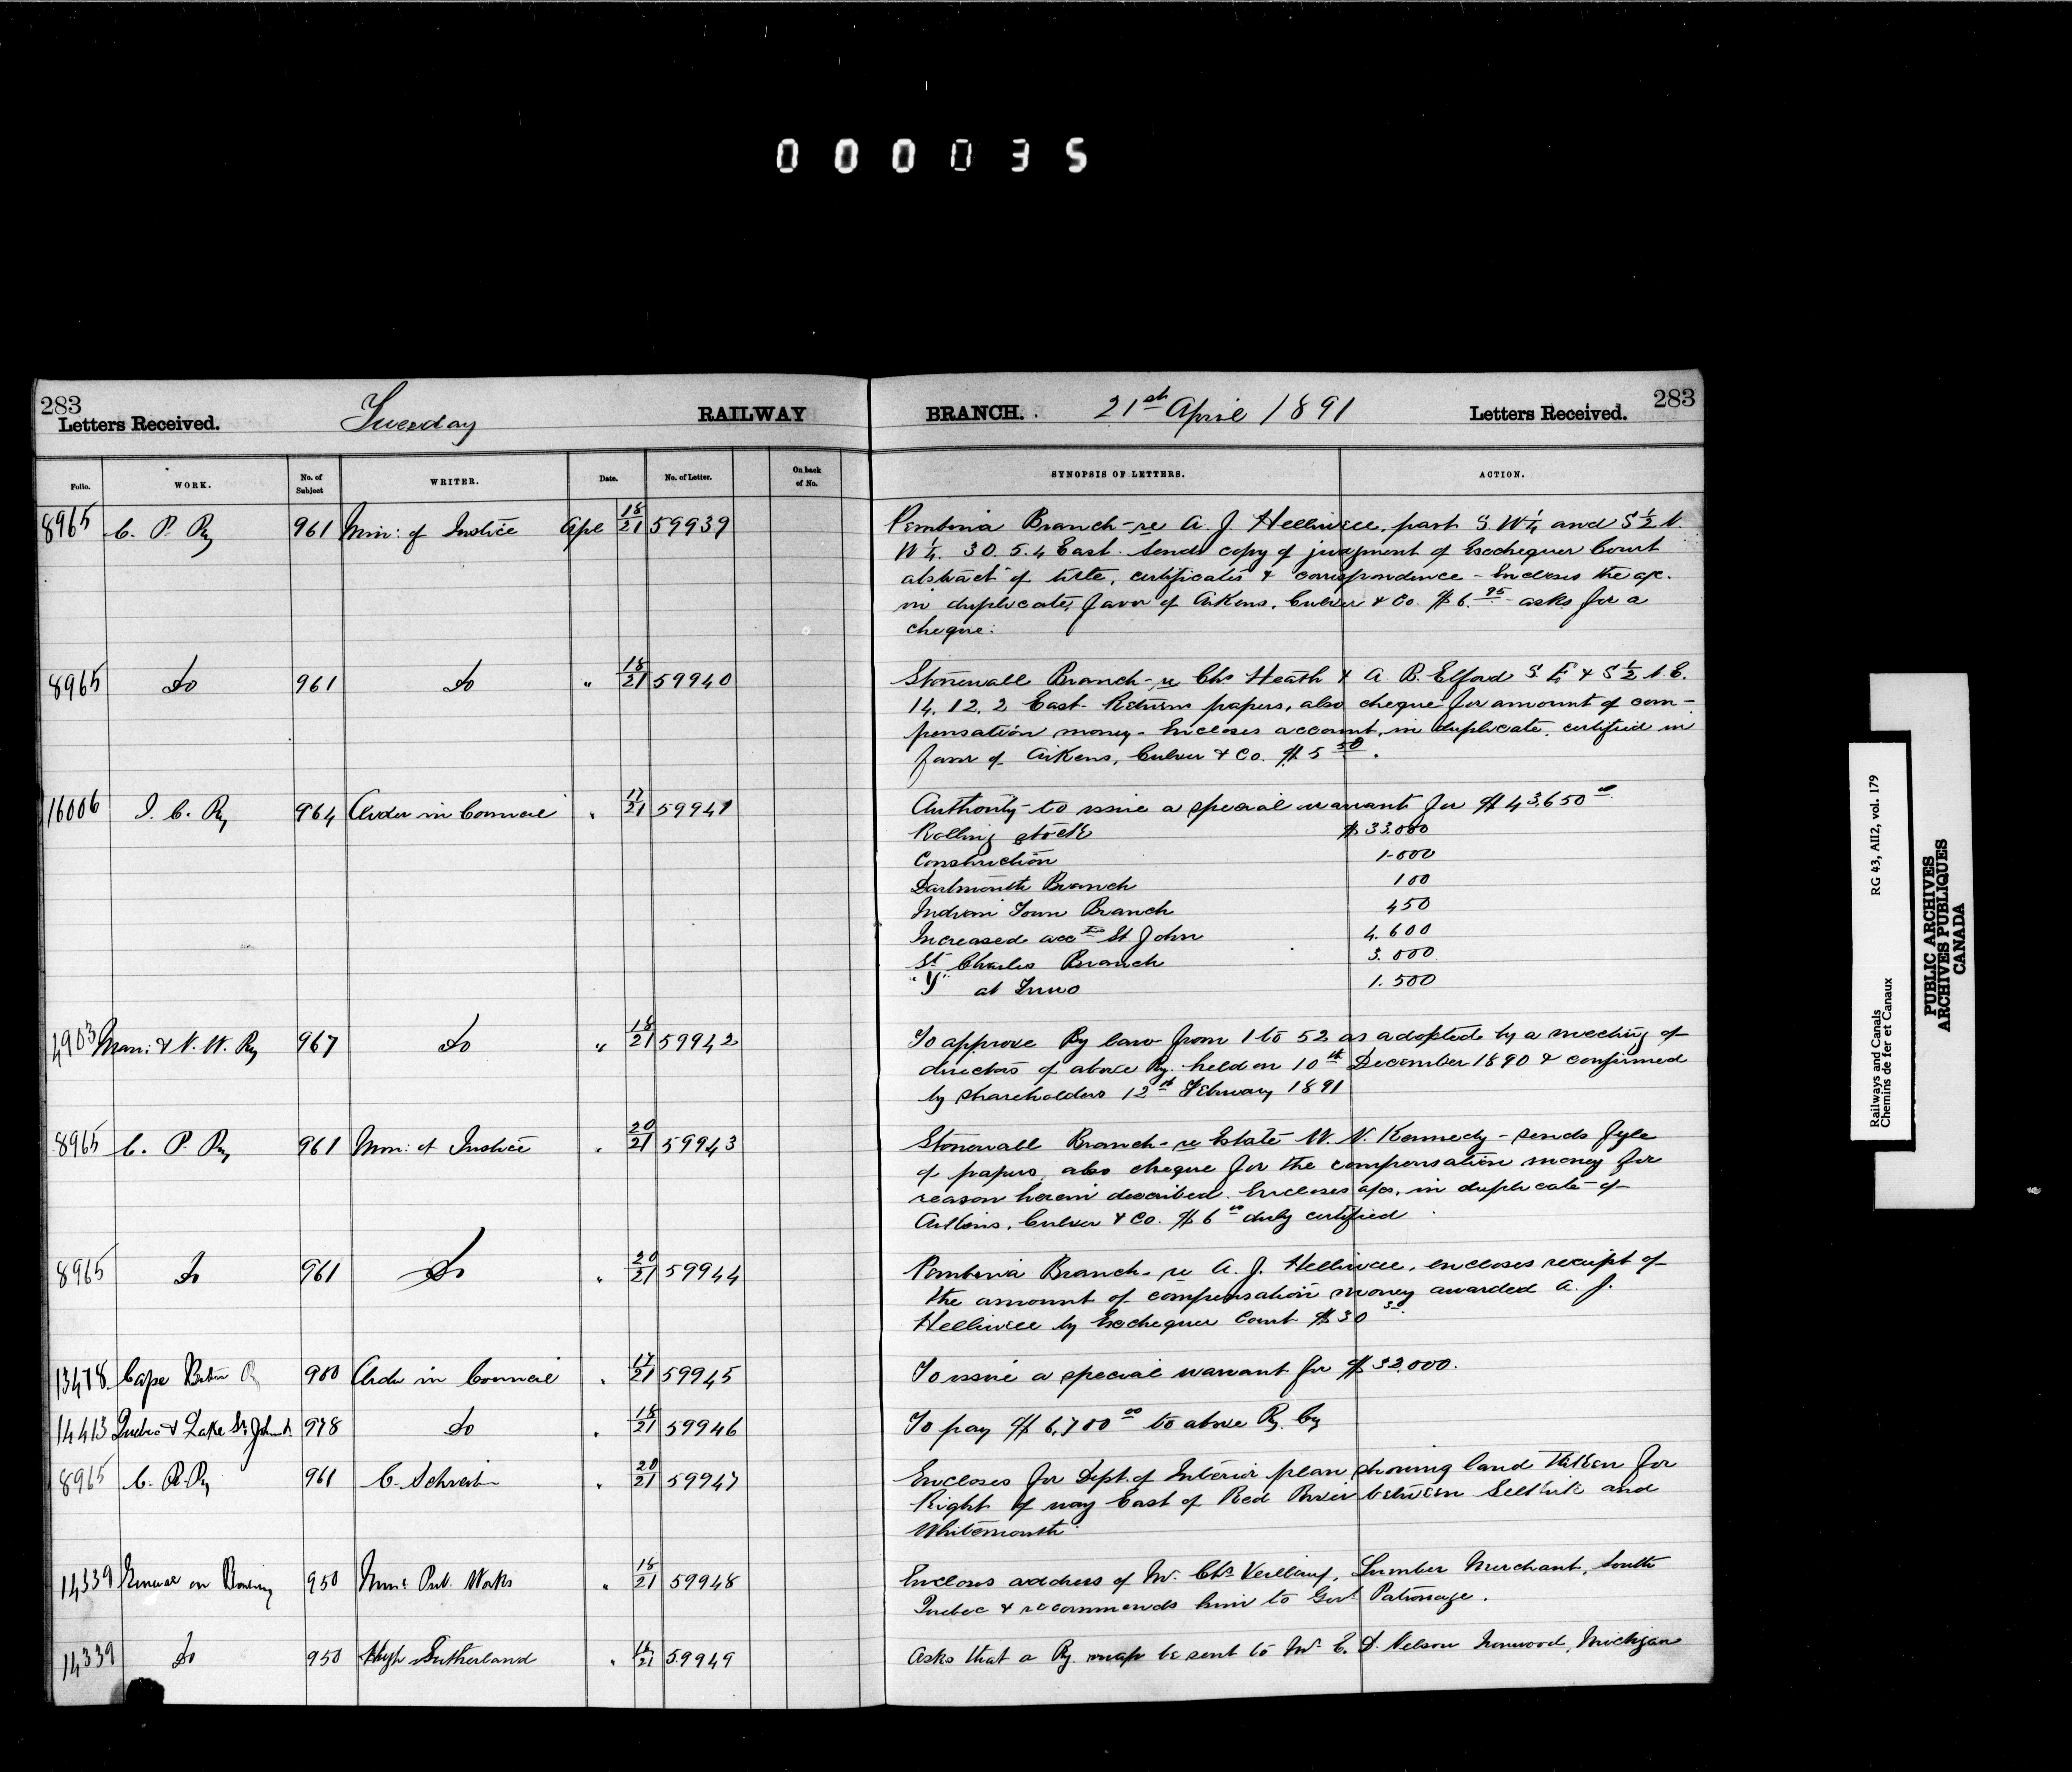 000035
283
Letters Received.
Tuesday
RAILWAY
BRANCH.
21st April 1891
Letters Received.
283
Folio. WORK. No. of Subject WRITER. Date. No. of Letter. On back of No. SYNOPSIS OF LETTERS. ACTION.
8965 C. P. Ry 961 Min: of Justice Apl 18/21 59939 Pembina Branch - re A. J. Helliwell, part S. W 1/4 and S 1/2 N.
W 1/4. 30. 5. 4 East. Sends copy of judgment of Exchequer Court
abstract of title, certificates & correspondence - Encloses the a/c.
in duplicate, favor of Aikens, Culver & Co. $6.95 - asks for a
cheque.
8965 Do 961 Do " 18/21 59940 Stonewall Branch - re Chs Heath & A. B. Elford S. E & S 1/2 N. E.
14. 12. 2 East. Returns papers, also cheque for amount of com-
pensation money - Encloses account, in duplicate, certified in
favor of Aikens, Culver & Co. $5 50.
16006 I. C. Ry 964 Order in Council " 17/21 59941 Authority to issue a special warrant for $43.650 00
Rolling Stock $33.000
Construction 1.000
Dartmouth Branch 100
Indian Town Branch 450
Increased acc tn St. John 4.600
St Charles Branch 3.000
"Y" at Truro 1.500
4903 Man: & N. W. Ry 967 Do " 18/21 59942 To approve By laws from 1 to 52 as adopted by a meeting of
directors of above Ry. held on 10th December 1890 & confirmed
by shareholders 12th February 1891
8965 C. P. Ry 961 Min: of Justice " 20/21 59943 Stonewall Branch - re Estate W. N. Kennedy - sends fyle
of papers, also cheque for the compensation money for
reason herein described. Encloses a/cs, in duplicate of
Aikins, Culver & Co. $6 00 duly certified
8965 Do 961 Do " 20/21 59944 Pembina Branch - re A. J. Helliwell, encloses receipt of
the amount of compensation money awarded A. J.
Helliwell by Exchequer Court $30
13478 Cape Breton R 980 Order in Council " 17/21 59945 To issue a special warrant for $32,000.
14413 Quebec & Lake St. John R. 978 Do " 18/21 59946 To pay $6,700 00 to above Ry. Cy
8965 C. P. Ry 961 C. Schreiber " 20/21 59947 Encloses for Dept. of Interior plan showing land taken for
Right of way East of Red River between Selkirk and
Whitemouth
14339 General on Railway 950 Minr Pub. Works " 18/21 59948 Encloses address of Mr. Chs , Lumber Merchant, South
Quebec & recommends him to Govt Patronage.
14339 Do 950 Hugh Sutherland " 16/21 59949 Asks that a Ry. map be sent to Mr E. D. Nelson Ironwood, Michigan
Railways and Canals RG 43, AII2, vol. 179
Chemins de fer et Canaux
PUBLIC ARCHIVES
ARCHIVES PUBLIQUES
CANADA